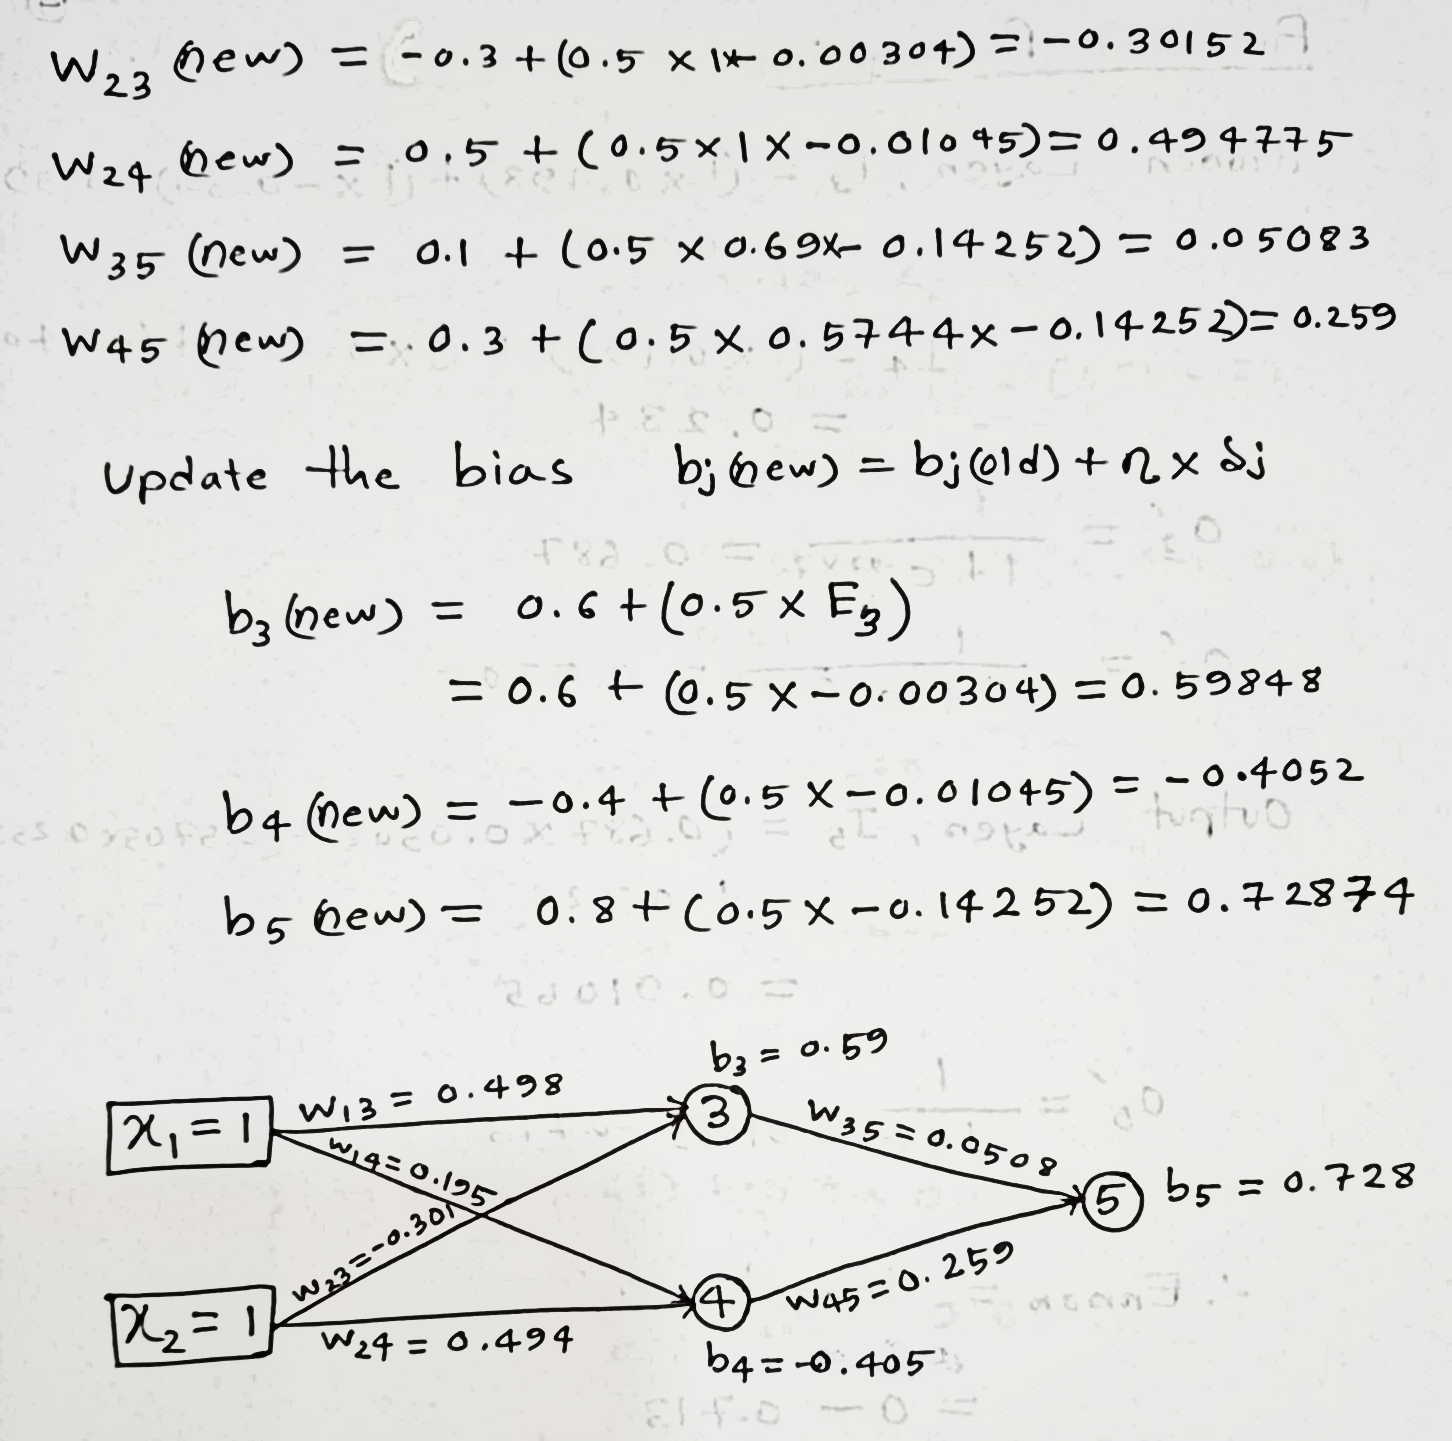 W23 (new) = -0.3 + (0.5 × 1×-0.00304) = -0.30152
W24 (new) = 0.5 + (0.5 × 1 × -0.01045) = 0.494775
W35 (new) = 0.1 + (0.5 × 0.69×-0.14252) = 0.05083
W45 (new) = 0.3 + (0.5 × 0.5744 × -0.14252) = 0.259
Update the bias bj(new) = bj(old) + η × δj
b3 (new) = 0.6 + (0.5 × E3)
= 0.6 + (0.5 × -0.00304) = 0.59848
b4 (new) = -0.4 + (0.5 × -0.01045) = -0.4052
b5 (new) = 0.8 + (0.5 × -0.14252) = 0.72874
b3 = 0.59
x1 = 1
W13 = 0.498
3
W35 = 0.0508
W14 = 0.195
W23 = -0.301
5
b5 = 0.728
x2 = 1
W24 = 0.494
4
W45 = 0.259
b4 = -0.405